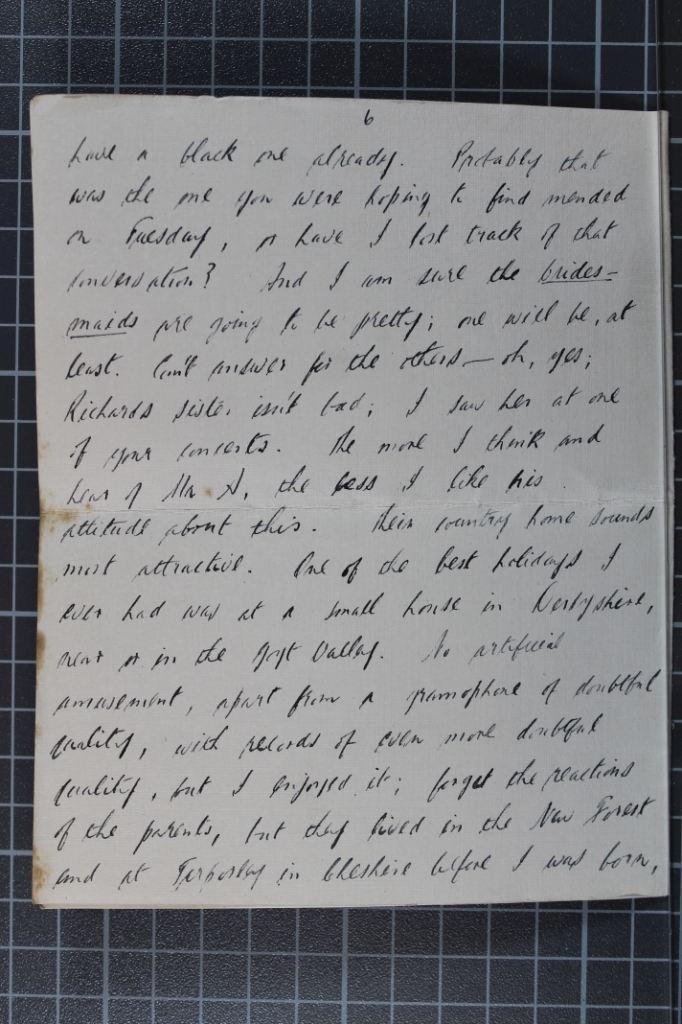 6
have a black one already. Probably that
was the one you were hoping to find mended
on Tuesday, or have I lost track of that
conversation? And I am sure the brides-
maids are going to be pretty; one will be, at
least. Can't answer for the others — oh, yes;
Richards sister isn't bad; I saw her at one
of your concerts. The more I think and
hear of Mr A, the less I like his
attitude about this. Their country home sounds
most attractive. One of the best holidays I
ever had was at a small house in Derbyshire,
near or in the Goyt Valley. No artificial
amusement, apart from a gramophone of doubtful
quality, with records of even more doubtful
quality, but I enjoyed it; forget the reactions
of the parents, but they lived in the New Forest
and at Tarporley in Cheshire before I was born,